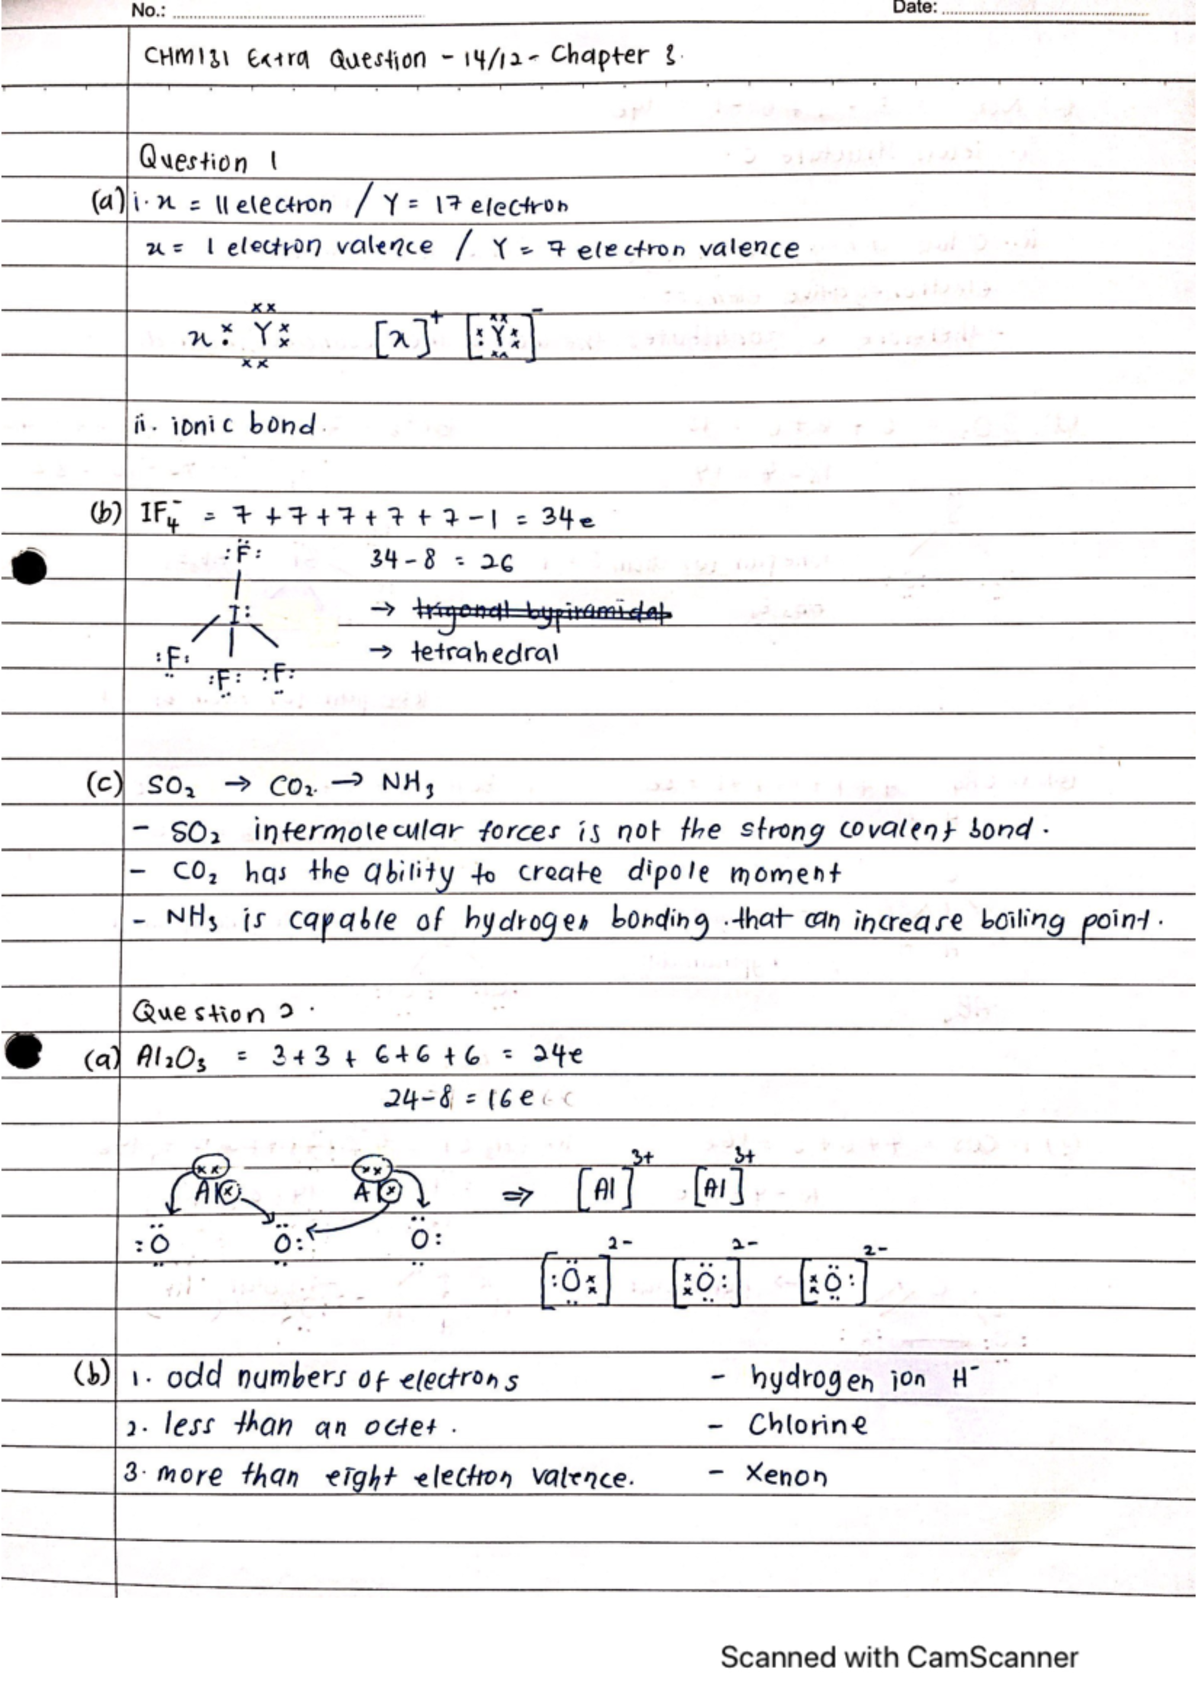 No.: Date:
CHM131 Extra Question - 14/12 - Chapter 3.
Question 1
(a) i. x = 11 electron / Y = 17 electron
x = 1 electron valence / Y = 7 electron valence
x Y [x]⁺ [Y]⁻
ii. ionic bond.
(b) IF₄⁻ = 7 + 7 + 7 + 7 + 7 - 1 = 34e
:F: 34 - 8 = 26
I: → trigonal bypiramidal
:F: :F: :F: → tetrahedral
(c) SO₂ → CO₂ → NH₃
- SO₂ intermolecular forces is not the strong covalent bond.
- CO₂ has the ability to create dipole moment
- NH₃ is capable of hydrogen bonding that can increase boiling point.
Question 2.
(a) Al₂O₃ = 3 + 3 + 6 + 6 + 6 = 24e
24 - 8 = 16e
Al Al ⇒ [Al]³⁺ [Al]³⁺
:O O: O: [:O]²⁻ [O:]²⁻ [O:]²⁻
(b) 1. odd numbers of electrons - hydrogen ion H⁻
2. less than an octet. - Chlorine
3. more than eight electron valence. - Xenon
Scanned with CamScanner